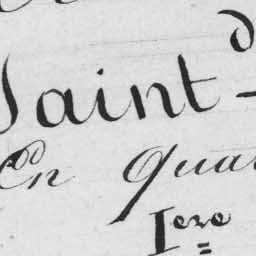 Saint-d
En Qua
Iere